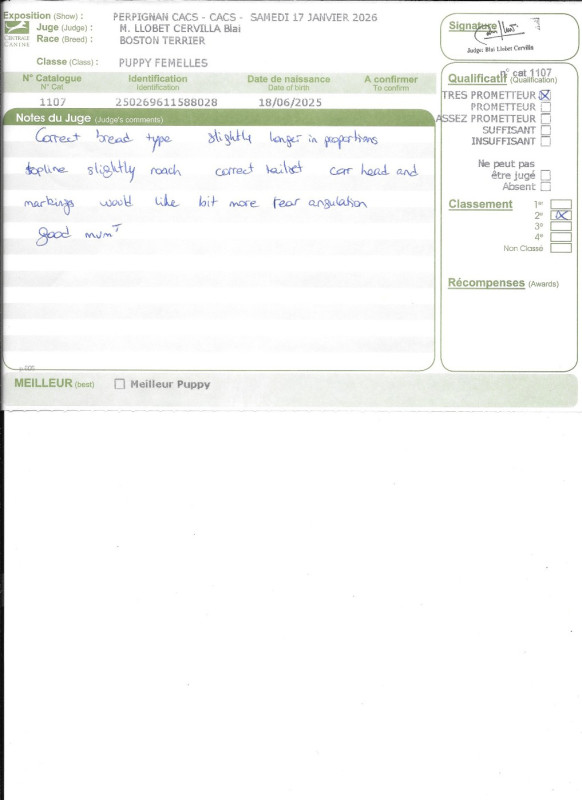 Exposition (Show) : PERPIGNAN CACS - CACS - SAMEDI 17 JANVIER 2026
Juge (Judge) : M. LLOBET CERVILLA Blai
Race (Breed) : BOSTON TERRIER
CENTRALE CANINE
Classe (Class) : PUPPY FEMELLES
N° Catalogue Identification Date de naissance A confirmer
N° Cat Identification Date of birth To confirm
1107 250269611588028 18/06/2025
Notes du Juge (Judge's comments)
Correct bread type slightly longer in proportions
topline slightly roach correct tailset corr head and
markings would like bit more rear angulation
good mvmT
MEILLEUR (best) Meilleur Puppy
Signature
Judge: Blai Llobet Cervilla
n° cat 1107
Qualificatif (Qualification)
TRES PROMETTEUR
PROMETTEUR
ASSEZ PROMETTEUR
SUFFISANT
INSUFFISANT
Ne peut pas
être jugé
Absent
Classement 1er
2e
3e
4e
Non Classé
Récompenses (Awards)